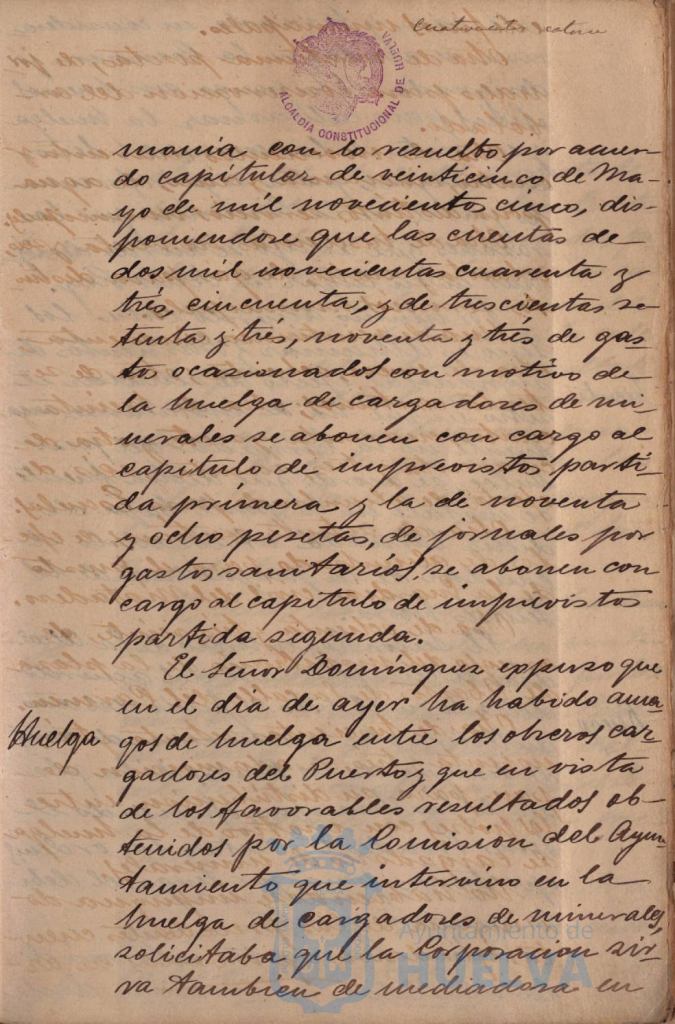 Cuatrocientos catorce
ALCALDIA CONSTITUCIONAL DE HUELVA
monia con lo resuelto por acuer-
do capitular de veinticinco de Ma-
yo de mil novecientos cinco, dis-
poniendose que las cuentas de
dos mil novecientas cuarenta y
trés, cincuenta, y de trescientas se-
tenta y trés, noventa y trés de gas-
tos ocasionados con motivo de
la huelga de cargadores de mi-
nerales se abonen con cargo al
capitulo de imprevistos parti-
da primera y la de noventa
y ocho pesetas, de jornales por
gastos sanitarios, se abonen con
cargo al capitulo de imprevistos
partida segunda.
El Señor Domínguez expuso que
en el dia de ayer ha habido ama-
Huelga
gos de huelga entre los obreros car-
gadores del Puerto y que en vista
de los favorables resultados ob-
tenidos por la Comision del Ayun-
tamiento que intervino en la
huelga de cargadores de minerales,
solicitaba que la Corporacion sir-
va tambien de mediadora en
Ayuntamiento de
HUELVA